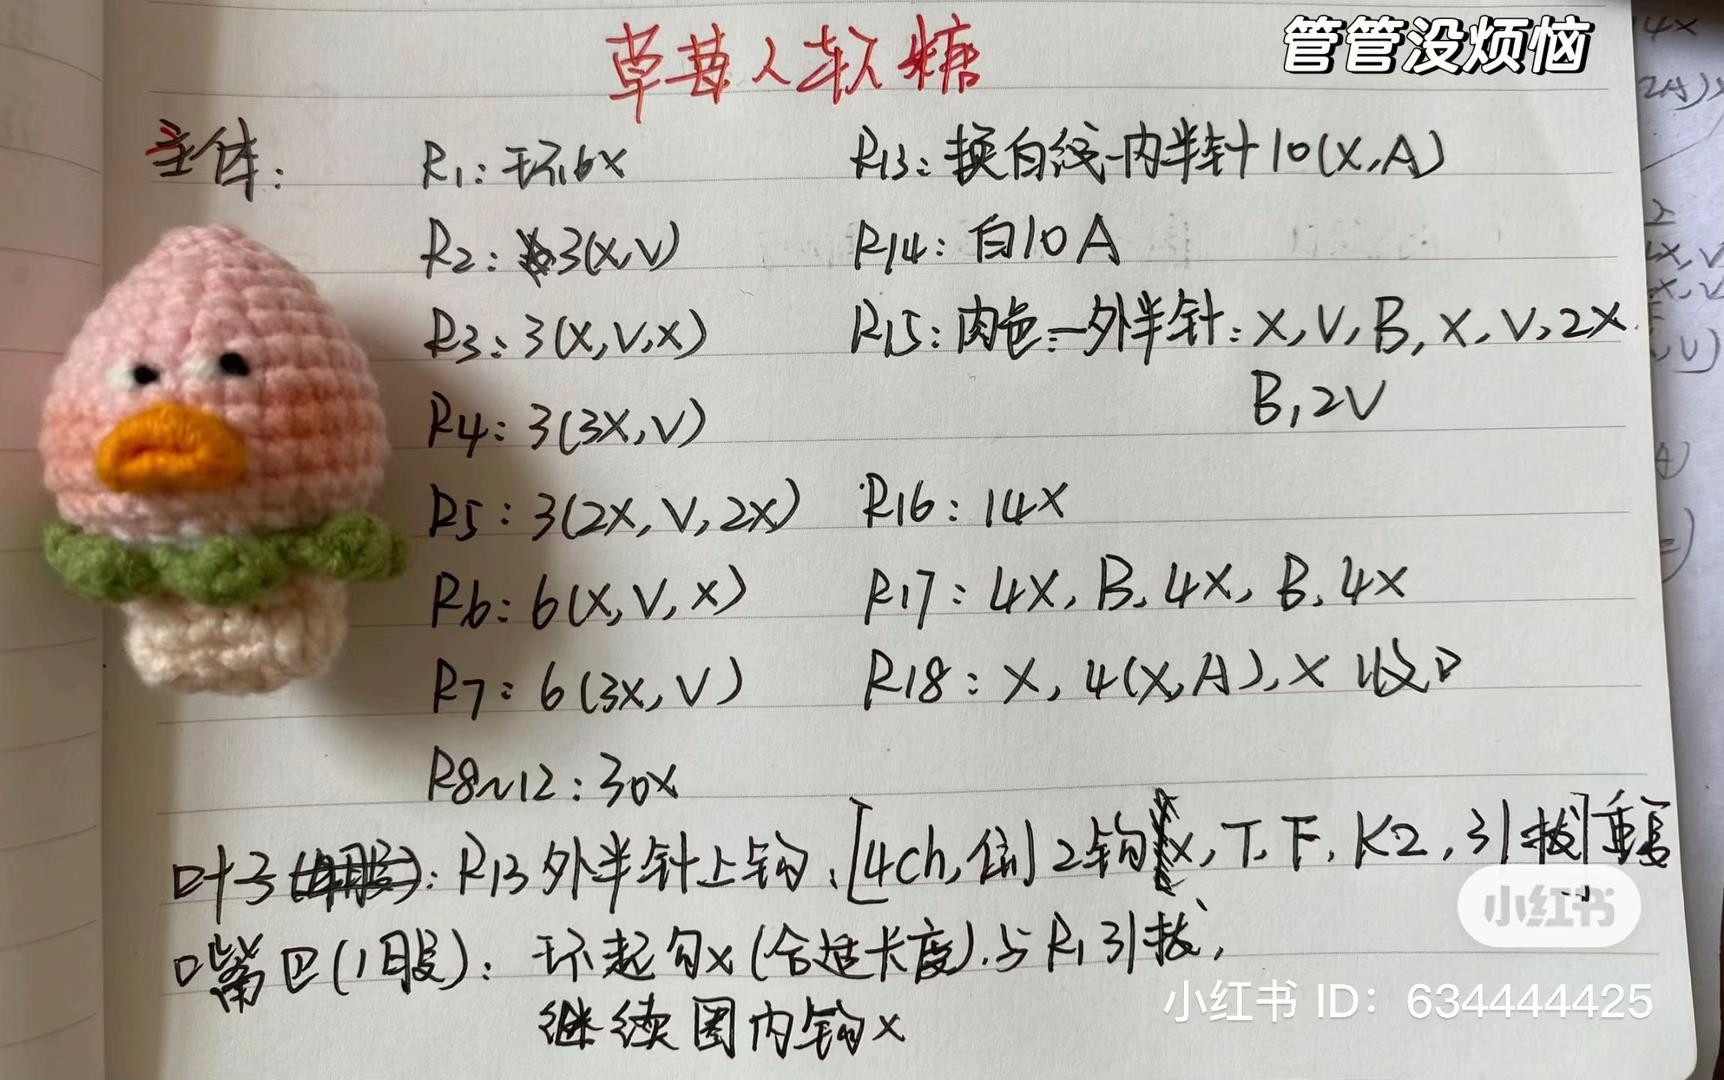 管管没烦恼
草莓人软糖
主体:
R1:环6X
R2:3(X,V)
R3:3(X,V,X)
R4:3(3X,V)
R5:3(2X,V,2X)
R6:6(X,V,X)
R7:6(3X,V)
R8~12:30X
R13:换白线-内半针10(X,A)
R14:白10A
R15:肉色-外半针:X,V,B,X,V,2X
B,2V
R16:14X
R17:4X,B,4X,B,4X
R18:X,4(X,A),X 收口
叶子:R13外半针上钩,[4ch,倒2钩X,T,F,K2,引拔]重复
嘴巴(1股):环起勾X(合适长度),与R1引拔,
继续圈内钩X
小红书
小红书 ID:634444425